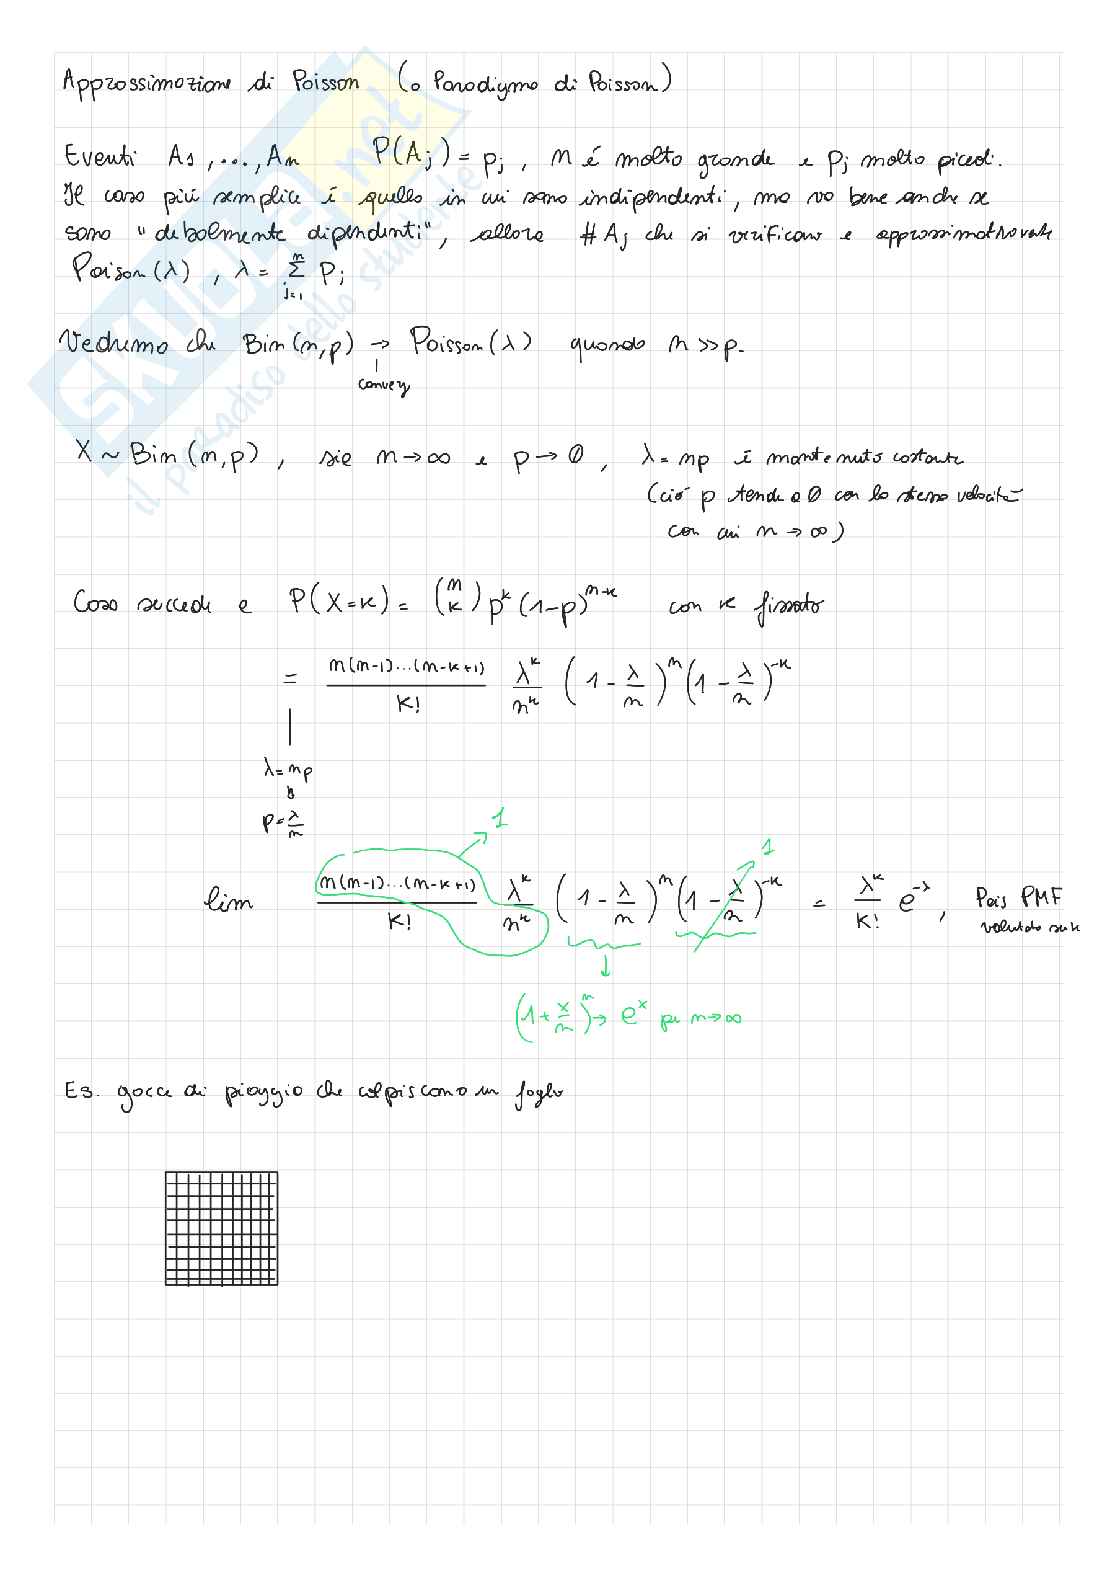 Approssimazione di Poisson (o Paradigma di Poisson)
Eventi A1,...,An P(Aj) = pj, n é molto grande e Pj molto piccoli.
Il caso piú semplice é quello in cui sono indipendenti, ma va bene anche se
sono "debolmente dipendenti", allora # Aj che si verificano é approssimativamente
Poisson(λ), λ = Σ_{j=1}^{n} Pj
Vedremo che Bin(n,p) → Poisson(λ) quando n >> p.
converg
X ~ Bin(n,p), sia n→∞ e p→0, λ = np é mantenuto costante
(cioé p tende a 0 con la stessa velocitá
con cui n→∞)
Cosa succede a P(X=k) = (n k) p^k (1-p)^{n-k} con k fissato
= n(n-1)...(n-k+1)/K! λ^k/n^k (1 - λ/n)^n (1 - λ/n)^{-k}
λ = np
p = λ/n
1
1
lim n(n-1)...(n-k+1)/K! λ^k/n^k (1 - λ/n)^n (1 - λ/n)^{-k} = λ^k/K! e^{-λ}, Pois PMF
valutata su k
(1 + x/n)^n → e^x per n→∞
Es. gocce di pioggia che colpiscono un foglio
SKUOLA.net
il paradiso dello studente